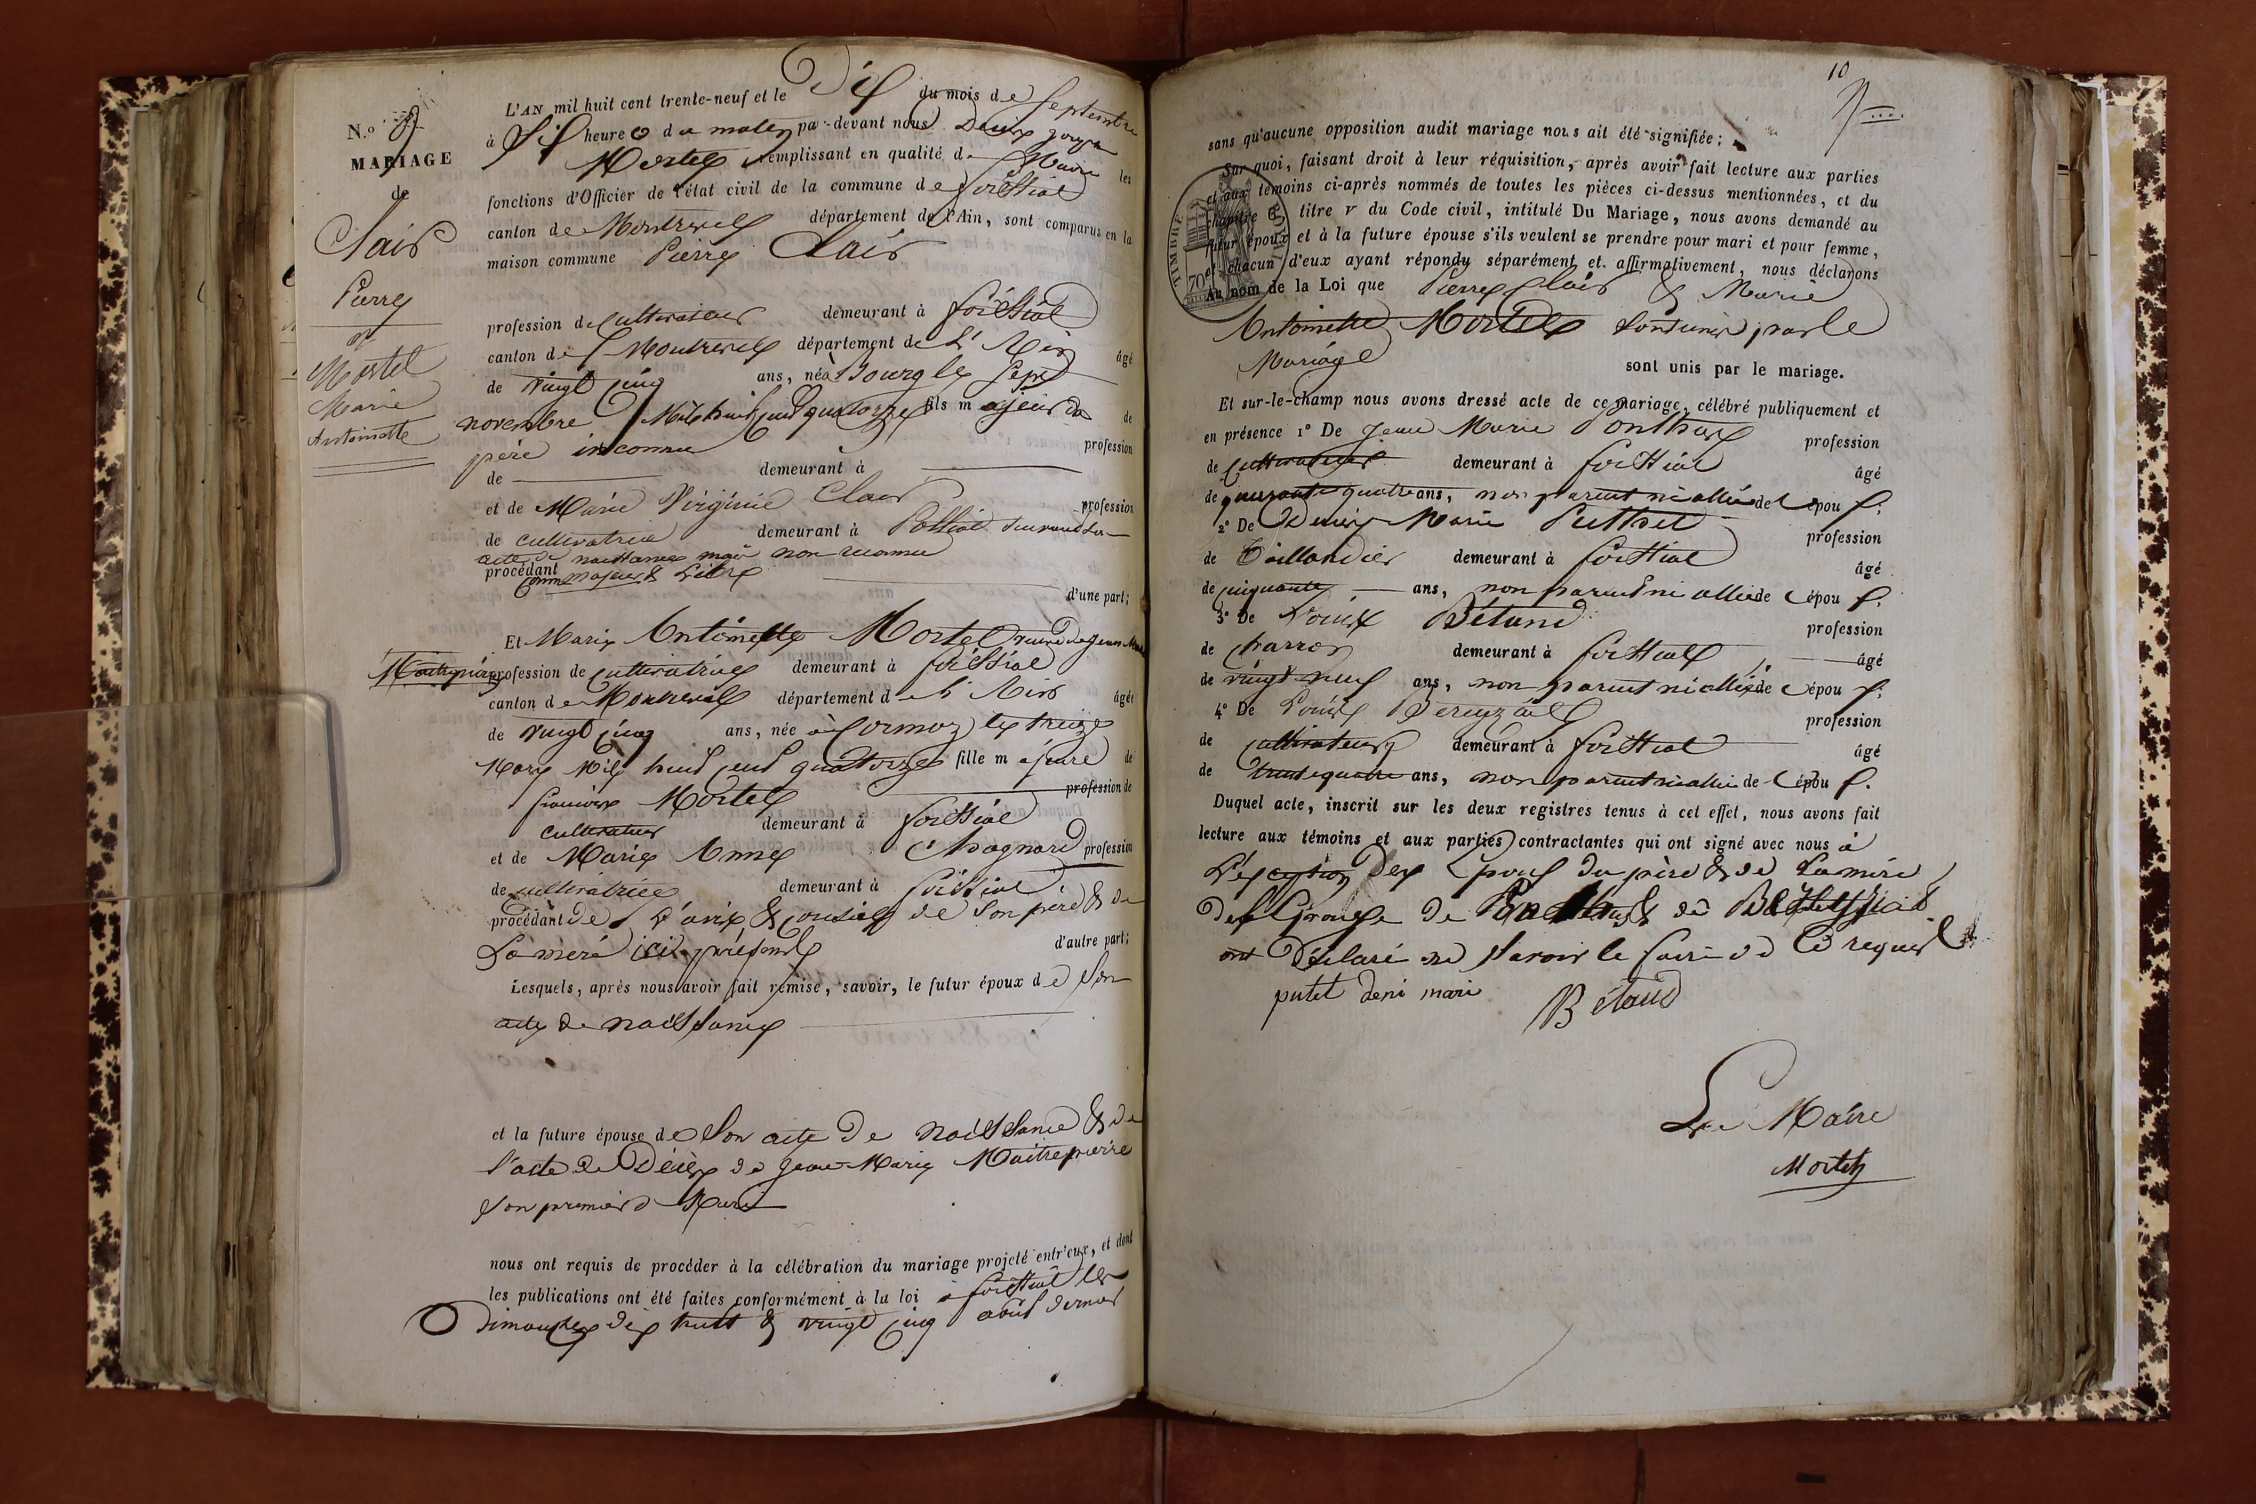 N.º 9
MARIAGE
de
Clair
Pierre
et
Mortel
Marie
Antoinette
L'AN mil huit cent trente-neuf et le Dix du mois de Septembre
à Six heure du matin par-devant nous
Mortel remplissant en qualité de Maire les
fonctions d'Officier de l'état civil de la commune de foissiat
canton de Montrevel département de l'Ain, sont comparus en la
maison commune Pierre Clair
profession de Cultivateur demeurant à foissiat
canton de Montrevel département de L'Ain âgé
de vingt cinq ans, né à Bourg le Sept
novembre Mil huit cent quatorze fils majeur de
père inconnu profession
de demeurant à
et de Marie Virginie Clair profession
de cultivatrice demeurant à Polliat suivant son
acte de naissance mais non reconnu
procédant comme majeur & Libre
d'une part;
Et Marie Antoinette Mortel veuve de Jean Marie
Maitrepierre profession de cultivatrice demeurant à foissiat
canton de Montrevel département de L'Ain âgée
de vingt cinq ans, née à Cormoz le treize
Mars Mil huit cent quatorze fille majeure de
françois Mortel profession de
cultivateur demeurant à foissiat
et de Marie Anne Chagnard profession
de cultivatrice demeurant à foissiat
procédant de L'avis & conseil de Son père & de
La mère ici présents d'autre part;
Lesquels, après nous avoir fait remise, savoir, le futur époux de Son
acte de naissance
et la future épouse de Son acte de naissance & de
l'acte de Décès de Jean Marie Maitrepierre
son premier Mari
nous ont requis de procéder à la célébration du mariage projeté entr'eux, et dont
les publications ont été faites conformément à la loi à foissiat les
Dimanches dix huit & vingt cinq août dernier
10
sans qu'aucune opposition audit mariage nous ait été signifiée;
Sur quoi, faisant droit à leur réquisition, après avoir fait lecture aux parties
et aux témoins ci-après nommés de toutes les pièces ci-dessus mentionnées, et du
chapitre 6 titre V du Code civil, intitulé Du Mariage, nous avons demandé au
futur époux et à la future épouse s'ils veulent se prendre pour mari et pour femme,
et chacun d'eux ayant répondu séparément et affirmativement, nous déclarons
Au nom de la Loi que Pierre Clair & Marie
TIMBRE ROYAL
70
Antoinette Mortel sont unis par le
Mariage
sont unis par le mariage.
Et sur-le-champ nous avons dressé acte de ce mariage, célébré publiquement et
en présence 1º De Jean Marie Ponthus profession
de cultivateur demeurant à foissiat âgé
de quarante quatre ans, non parent ni allié de l'épou x;
2º De Denis Marie Puthet profession
de Taillandier demeurant à foissiat âgé
de cinquante ans, non parent ni allié de l'épou x.
3º De Louis Bétand profession
de charron demeurant à foissiat âgé
de vingt neuf ans, non parent ni allié de l'épou x;
4º De Louis profession
de cultivateur demeurant à foissiat âgé
de trente quatre ans, non parent ni allié de l'épou x.
Duquel acte, inscrit sur les deux registres tenus à cet effet, nous avons fait
lecture aux témoins et aux parties contractantes qui ont signé avec nous à
L'exception des époux du père & de La mère
de l'épouse de Ponthus & de
ont déclaré ne Savoir le faire de ce requis
putet deni mari Bétand
Le Maire
Mortel